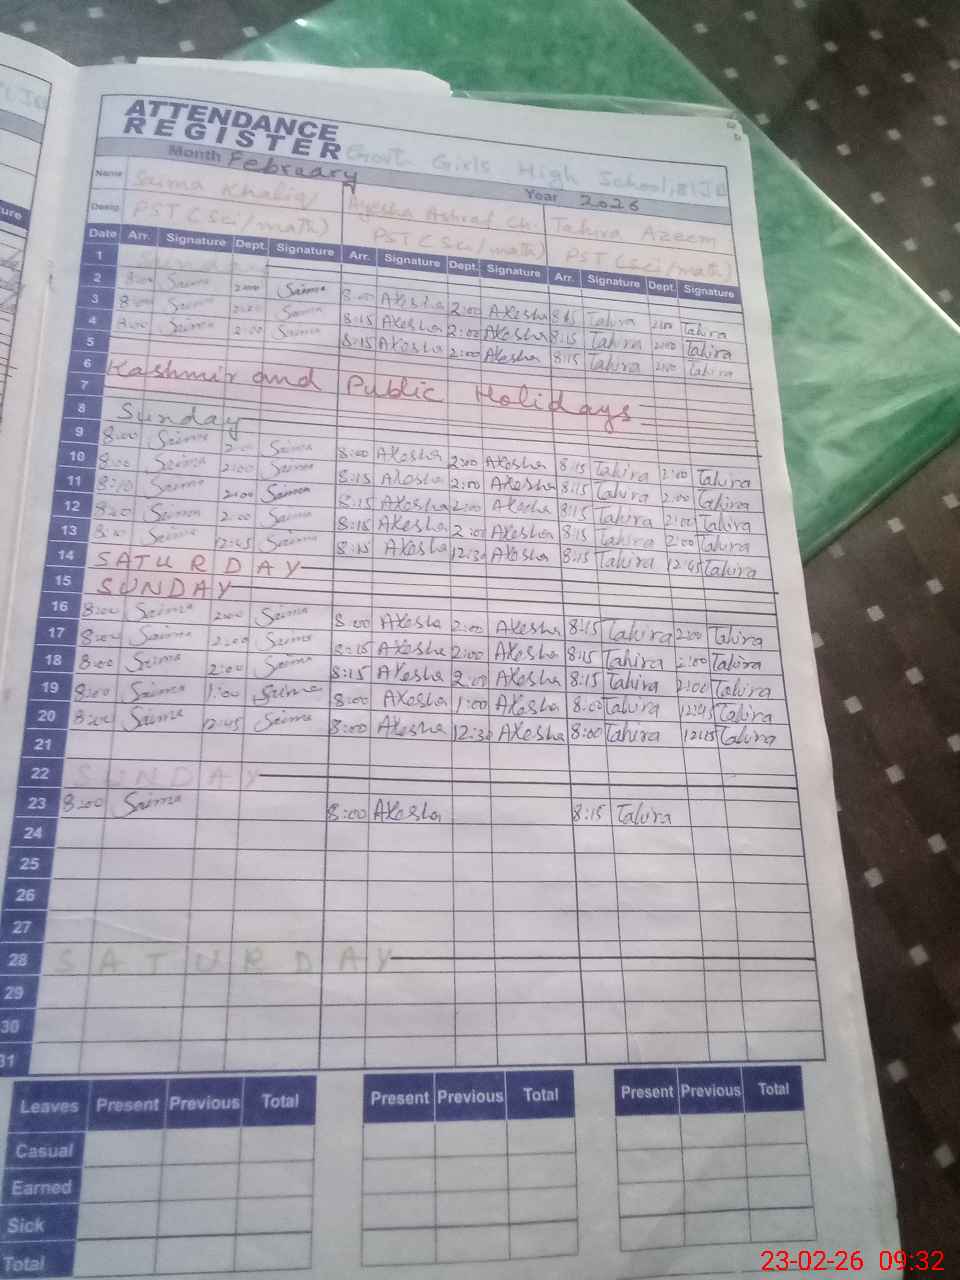 ATTENDANCE
REGISTER
Govt. Girls High School, 81JB
Month February Year 2026
Name Saima Khaliq Ayesha Ashraf Ch. Tahira Azeem
Desig. PST (Sci/math) PST (Sci/math) PST (Sci/math)
Date Arr. Signature Dept. Signature Arr. Signature Dept. Signature Arr. Signature Dept. Signature
1 Sunday
2 8:00 Saima 2:00 Saima 8:00 Axesha 2:00 Axesha 8:15 Tahira 2:00 Tahira
3 8:00 Saima 2:00 Saima 8:15 Axesha 2:00 Axesha 8:15 Tahira 2:00 Tahira
4 8:00 Saima 2:00 Saima 8:15 Axesha 2:00 Axesha 8:15 Tahira 2:00 Tahira
5
6 Kashmir and Public Holidays
7
8 Sunday
9 8:00 Saima 2:00 Saima 8:00 Axesha 2:00 Axesha 8:15 Tahira 2:00 Tahira
10 8:00 Saima 2:00 Saima 8:15 Axesha 2:00 Axesha 8:15 Tahira 2:00 Tahira
11 8:10 Saima 2:00 Saima 8:15 Axesha 2:00 Axesha 8:15 Tahira 2:00 Tahira
12 8:00 Saima 2:00 Saima 8:15 Axesha 2:00 Axesha 8:15 Tahira 2:00 Tahira
13 8:00 Saima 12:45 Saima 8:15 Axesha 12:30 Axesha 8:15 Tahira 12:45 Tahira
14 SATURDAY
15 SUNDAY
16 8:00 Saima 2:00 Saima 8:00 Axesha 2:00 Axesha 8:15 Tahira 2:00 Tahira
17 8:00 Saima 2:00 Saima 8:15 Axesha 2:00 Axesha 8:15 Tahira 2:00 Tahira
18 8:00 Saima 2:00 Saima 8:15 Axesha 2:00 Axesha 8:15 Tahira 2:00 Tahira
19 8:00 Saima 1:00 Saima 8:00 Axesha 1:00 Axesha 8:00 Tahira 12:45 Tahira
20 8:00 Saima 12:45 Saima 8:00 Axesha 12:30 Axesha 8:00 Tahira 12:45 Tahira
21
22 SUNDAY
23 8:00 Saima 8:00 Axesha 8:15 Tahira
24
25
26
27
28 SATURDAY
29
30
31
Leaves Present Previous Total Present Previous Total Present Previous Total
Casual
Earned
Sick
Total
23-02-26 09:32